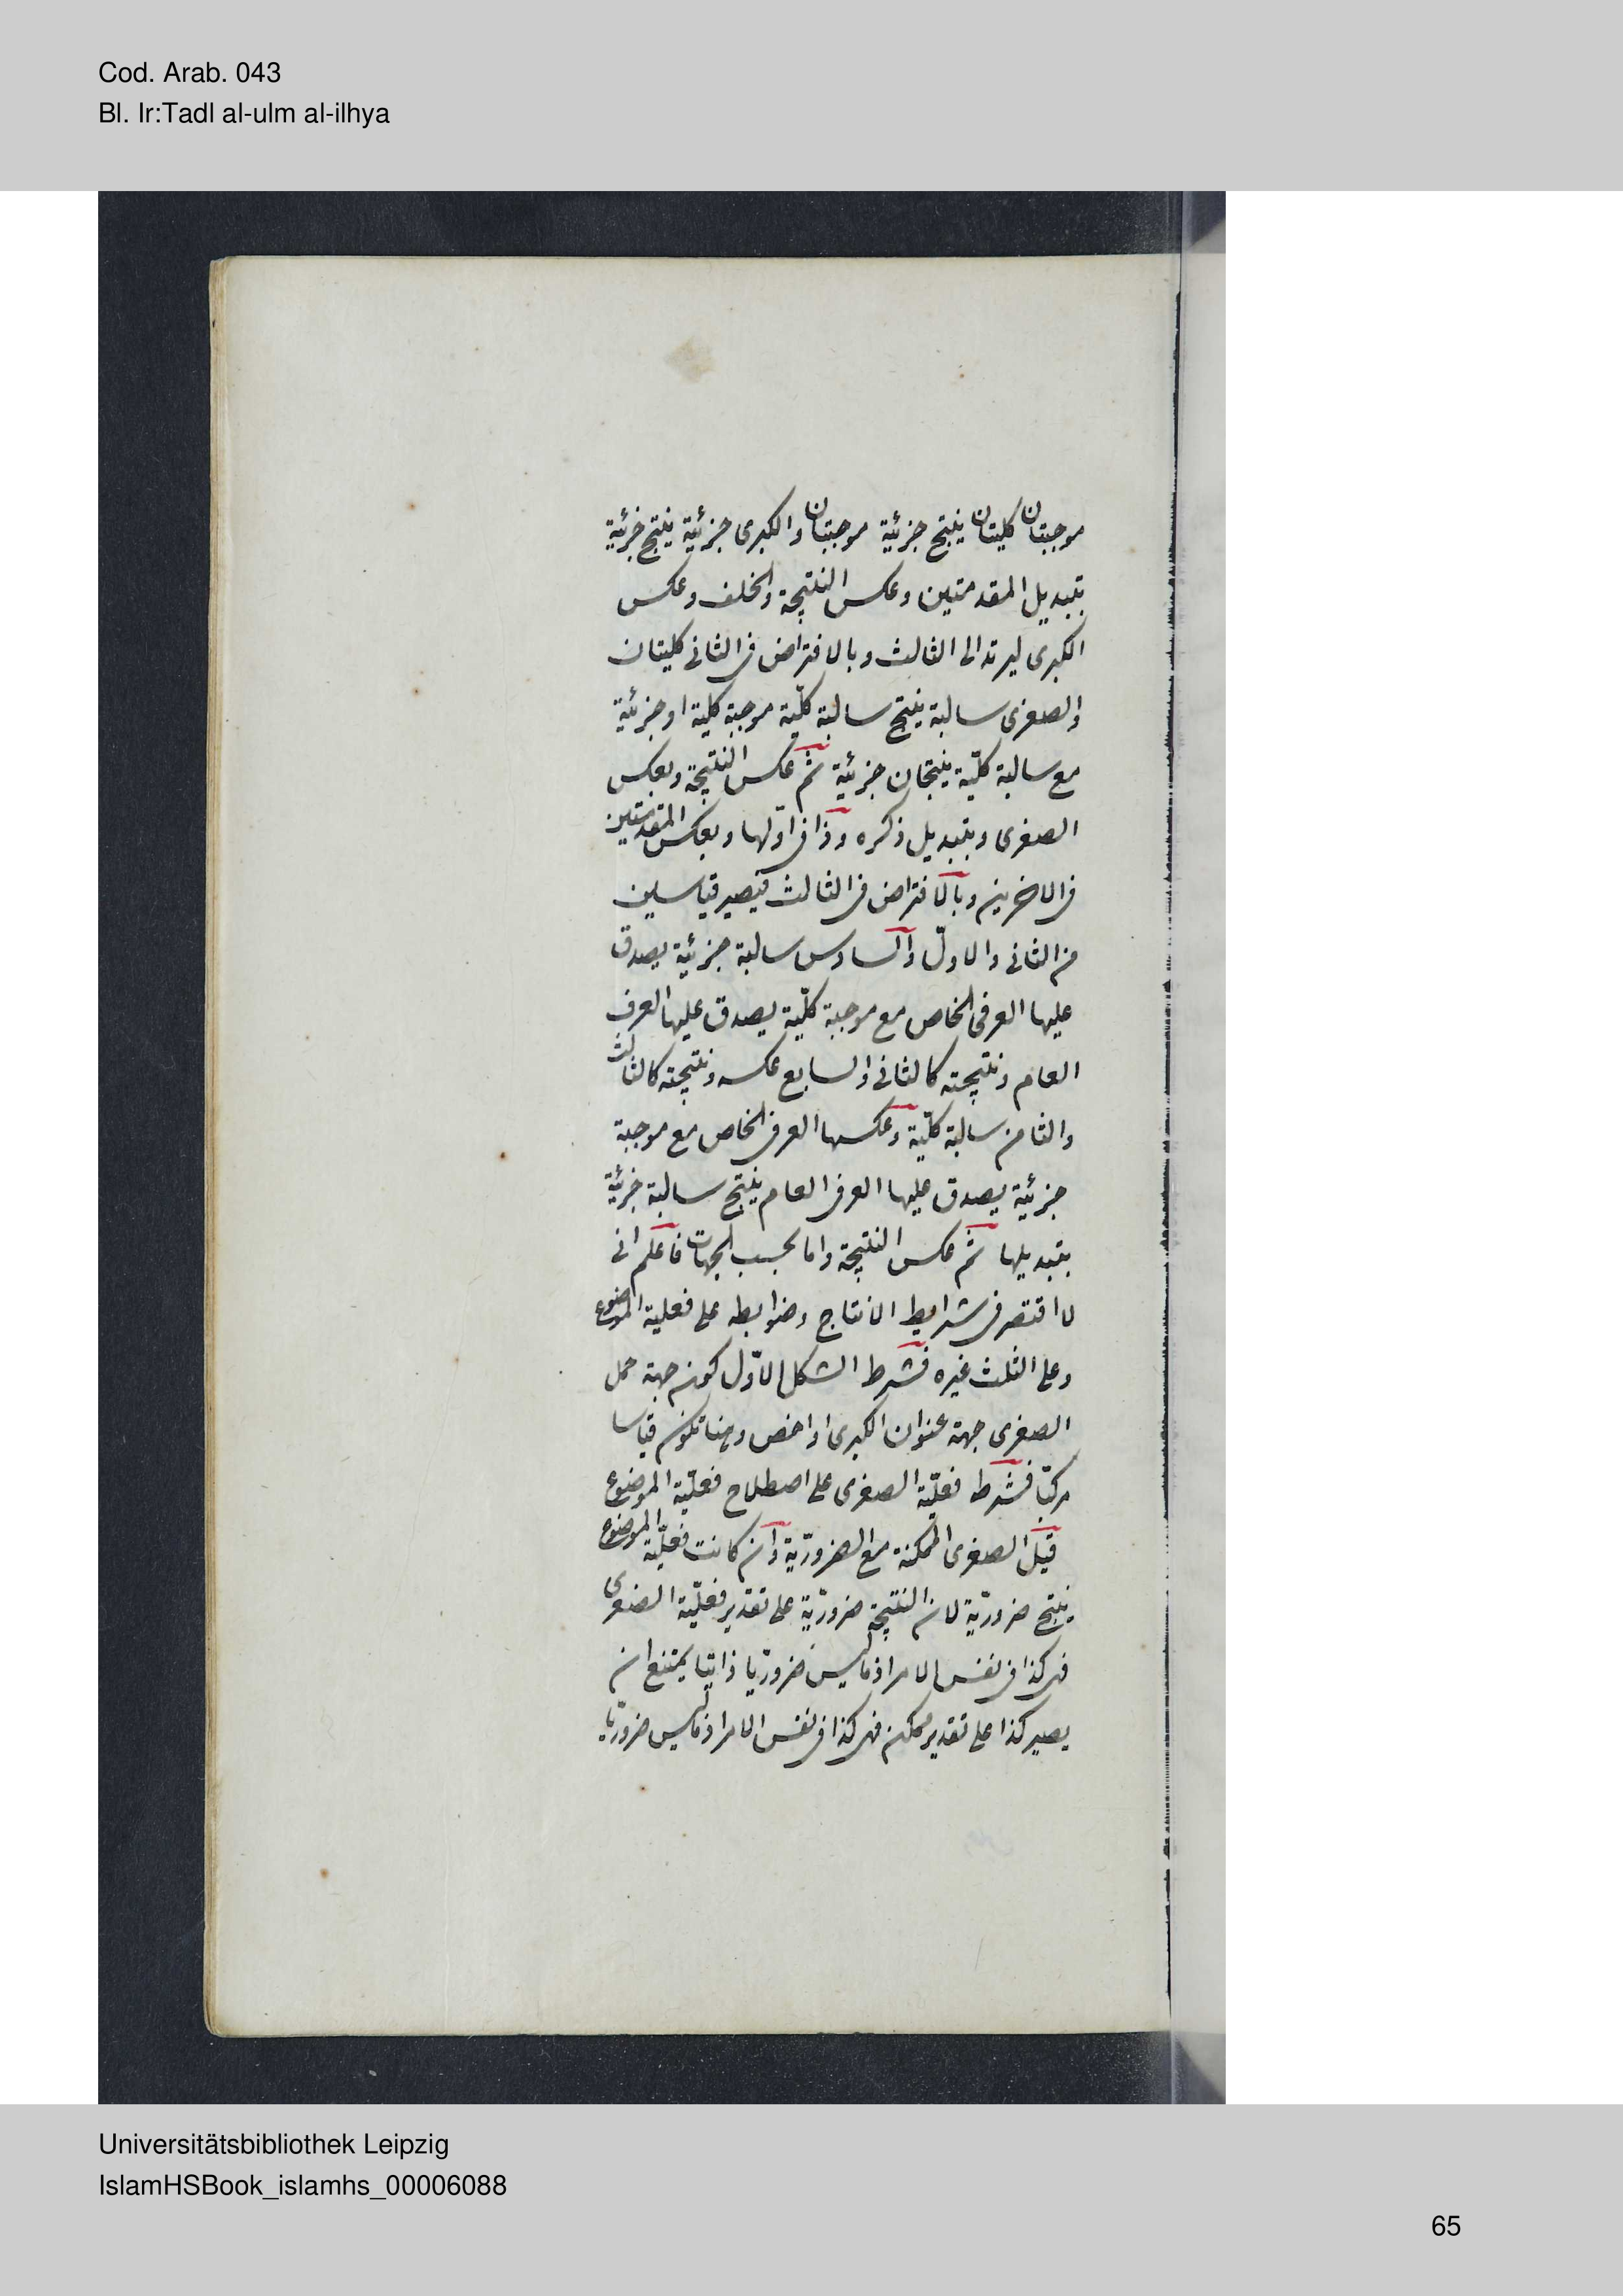 Cod. Arab. 043
Bl. Ir:Tadl al-ulm al-ilhya
موجبتان كليتان ينتج جزئية موجبتان والكبرى جزئية ينتج جزئية
بتبديل المقدمتين وعكس النتيجة والخلف وعكس
الكبرى ليرتد الى الثالث وبالافتراض فى الثانى كليتان
والصغرى سالبة ينتج سالبة كلّية موجبة كلية او جزئية
مع سالبة كلّية ينتجان جزئية ثم عكس النتيجة وبعكس
الصغرى وبتبديل ذكره وذا فى اولها وبعكس المقدمتين
فى الاخرين وبالافتراض فى الثالث فيصير قياسين
من الثانى والاولّ والسادس سالبة جزئية يصدق
عليها العرفى الخاص مع موجبة كلّية يصدق عليها العرفى
العام ونتيجته كالثانى والسابع عكسه ونتيجته كالثالث
والثامن سالبة كلّية وعكسها العرفى الخاص مع موجبة
جزئية يصدق عليها العرفى العام ينتج سالبة جزئية
بتبديلها ثم عكس النتيجة واما بحسب الجهات فاعلم انى
لا اقتصر فى شرايط الانتاج وضوابطه على فعلية الموضوع
وعلى الثلث غيره فشرط الشكل الاوّل كون جهة حمل
الصغرى جهة عنوان الكبرى او اخص وهنا تكون قياسا
مركبّا فشرط فعلّية الصغرى على اصطلاح فعلّية الموضوع
قيل الصغرى الممكنة مع الضرورّية وان كانت فعلّية الموضوع
ينتج ضرورّية لان النتيجة ضرورّية على تقدير فعلّية الصغرى
فهى كذا فى نفس الامر اذ ما ليس ضرورّيا ذاتيا يمتنع ان
يصير كذا على تقدير ممكن فهى كذا فى نفس الامر اذ ما ليس ضرورّيا
Universitätsbibliothek Leipzig
IslamHSBook_islamhs_00006088
65